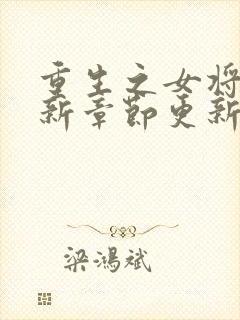 重生之女将
新章节更新
梁鸿斌